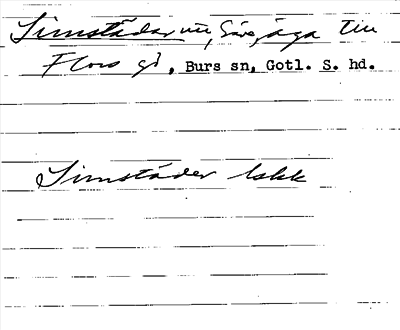 Simstädar nu, Sävs, äga till
Flors gd, Burs sn, Gotl. S. hd.
Simstäder lskk